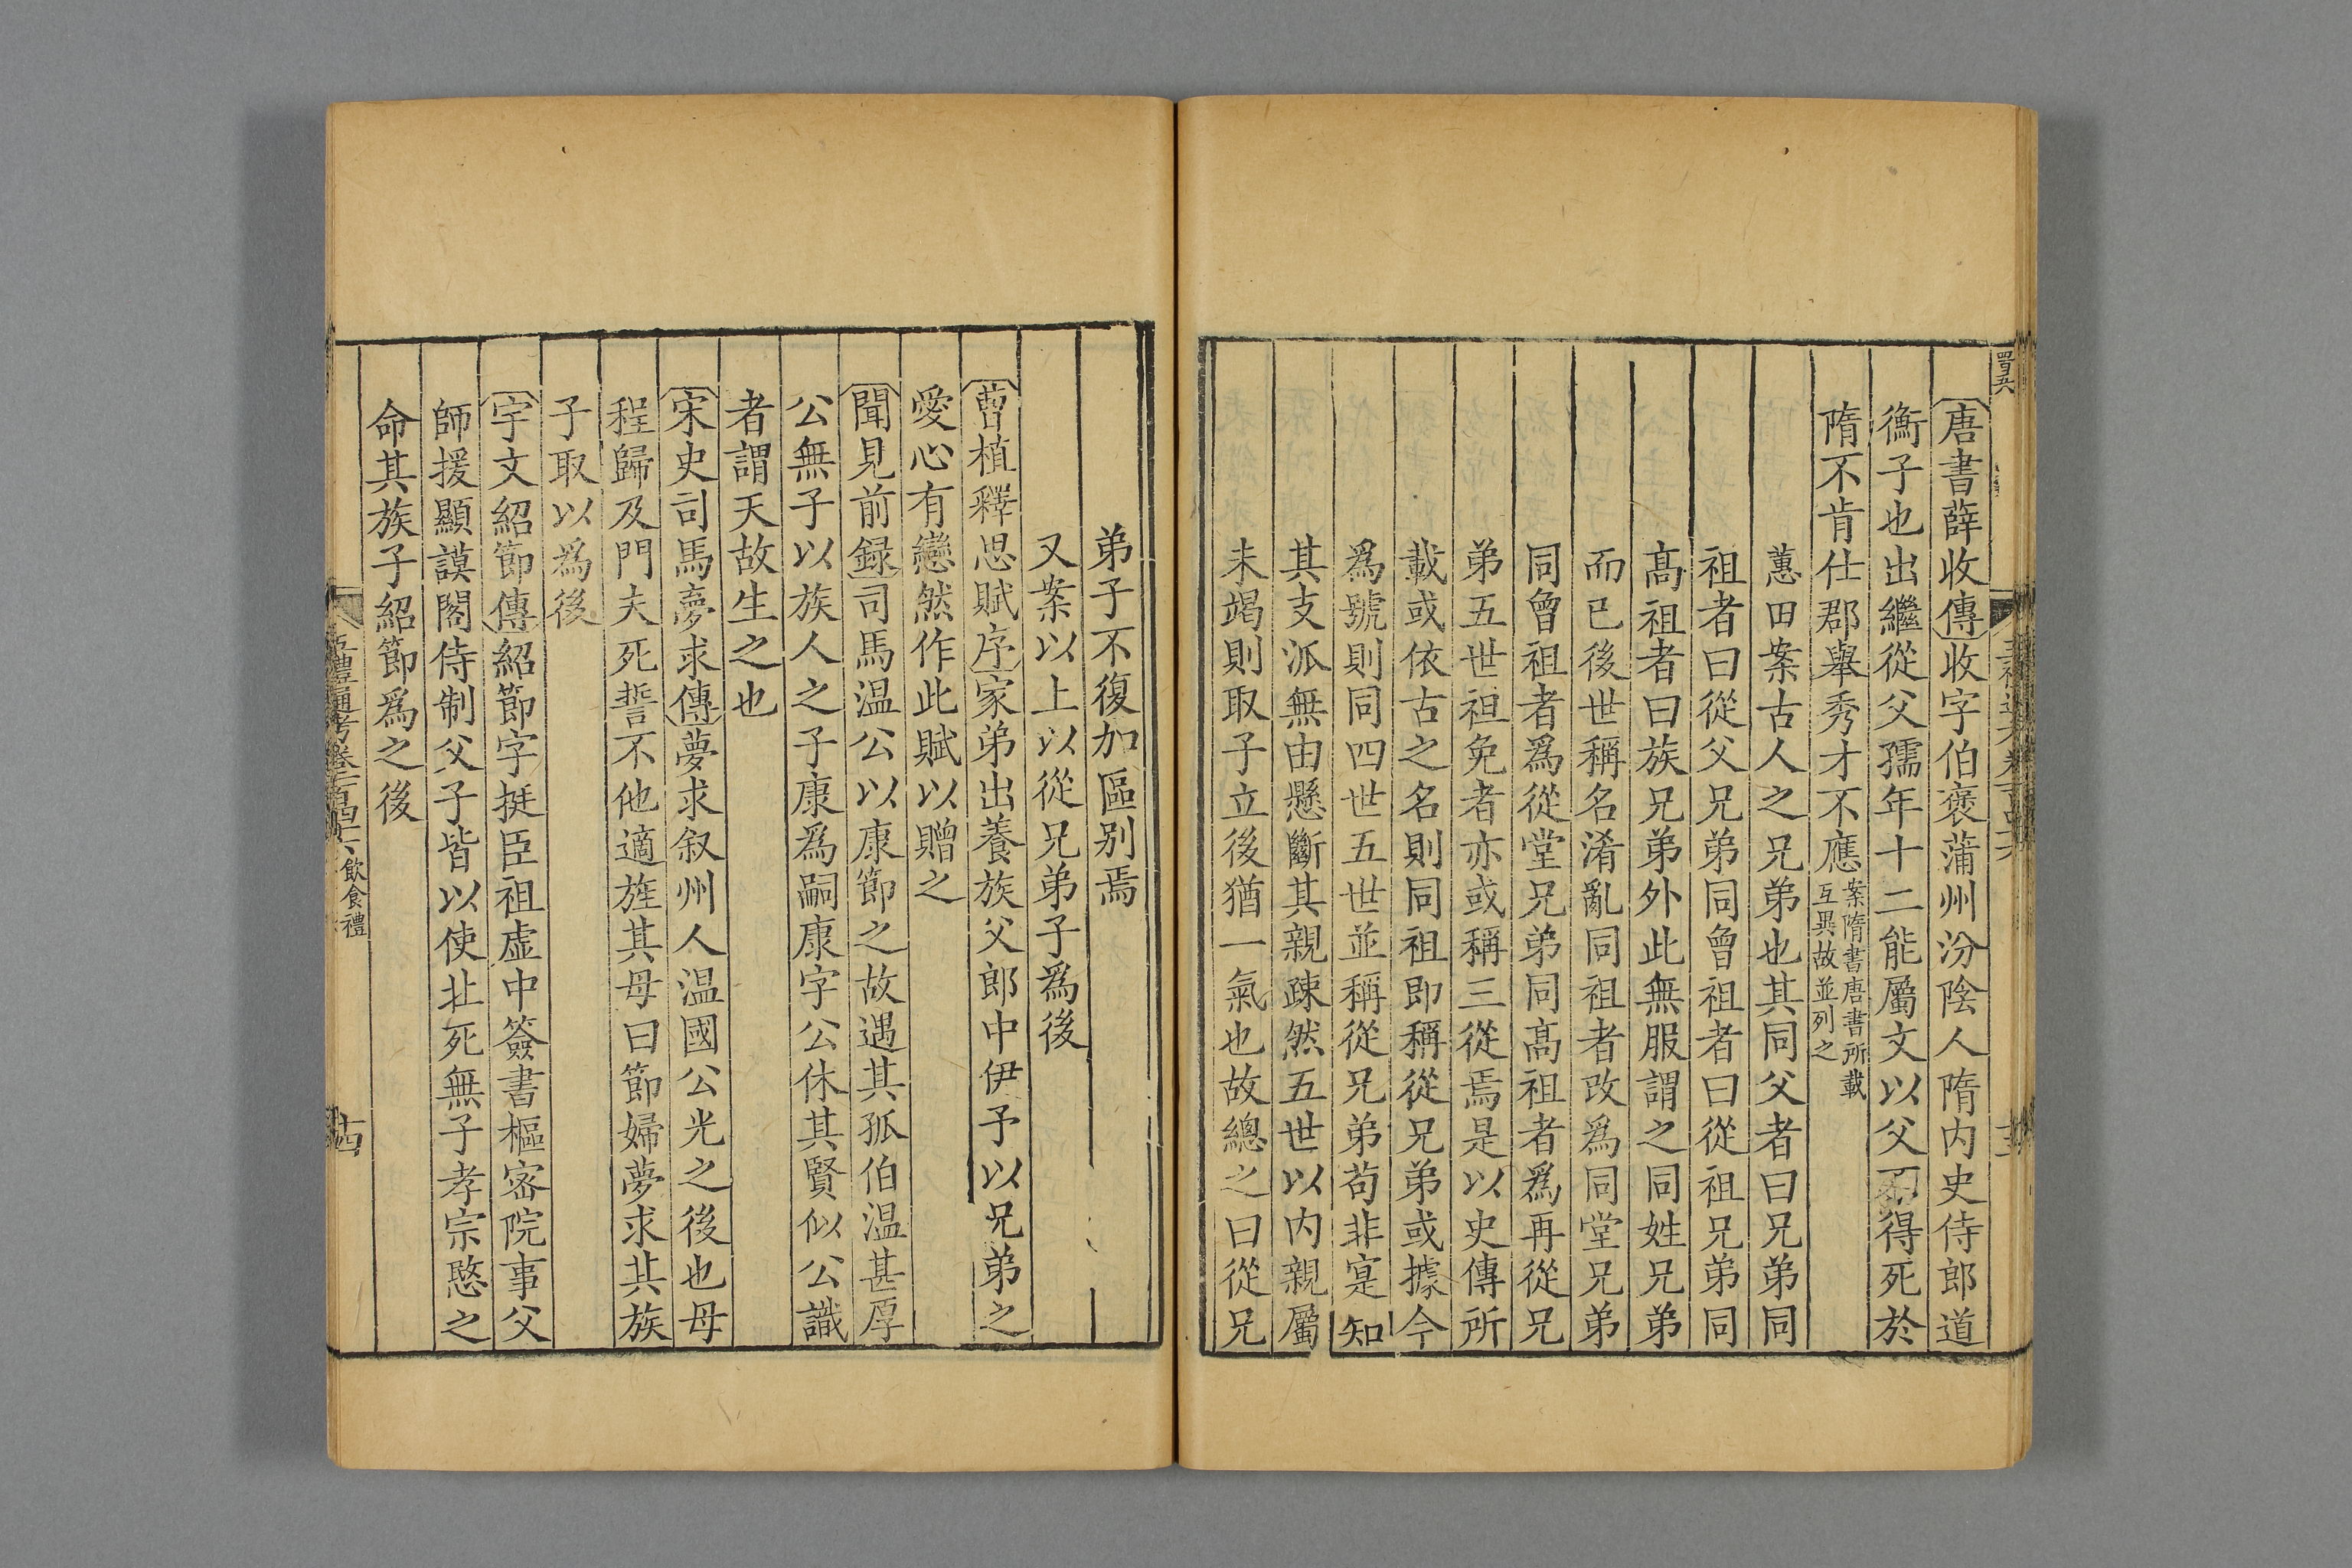 唐書薛收傳收字伯褒蒲州汾陰人隋内史侍郎道
衡子也出繼從父孺年十二能屬文以父不得死於
隋不肯仕郡舉秀才不應案隋書唐書所載
互異故並列之
蕙田案古人之兄弟也其同父者曰兄弟同
祖者曰從父兄弟同曾祖者曰從祖兄弟同
高祖者曰族兄弟外此無服謂之同姓兄弟
而已後世稱名淆亂同祖者改爲同堂兄弟
同曾祖者爲從堂兄弟同高祖者爲再從兄
弟五世袒免者亦或稱三從焉是以史傳所
載或依古之名則同祖即稱從兄弟或據今
爲號則同四世五世並稱從兄弟苟非寔知
其支派無由懸斷其親疎然五世以内親屬
未竭則取子立後猶一氣也故總之曰從兄
弟子不復加區别焉
又案以上以從兄弟子爲後
曹植釋思賦序家弟出養族父郎中伊予以兄弟之
愛心有戀然作此賦以贈之
聞見前録司馬温公以康節之故遇其孤伯温甚厚
公無子以族人之子康爲嗣康字公休其賢似公識
者謂天故生之也
宋史司馬夢求傳夢求叙州人温國公光之後也母
程歸及門夫死誓不他適旌其母曰節婦夢求其族
子取以爲後
宇文紹節傳紹節字挺臣祖虚中簽書樞密院事父
師援顯謨閣侍制父子皆以使北死無子孝宗愍之
命其族子紹節爲之後
五禮通考卷一百四十六 飲食禮
十四